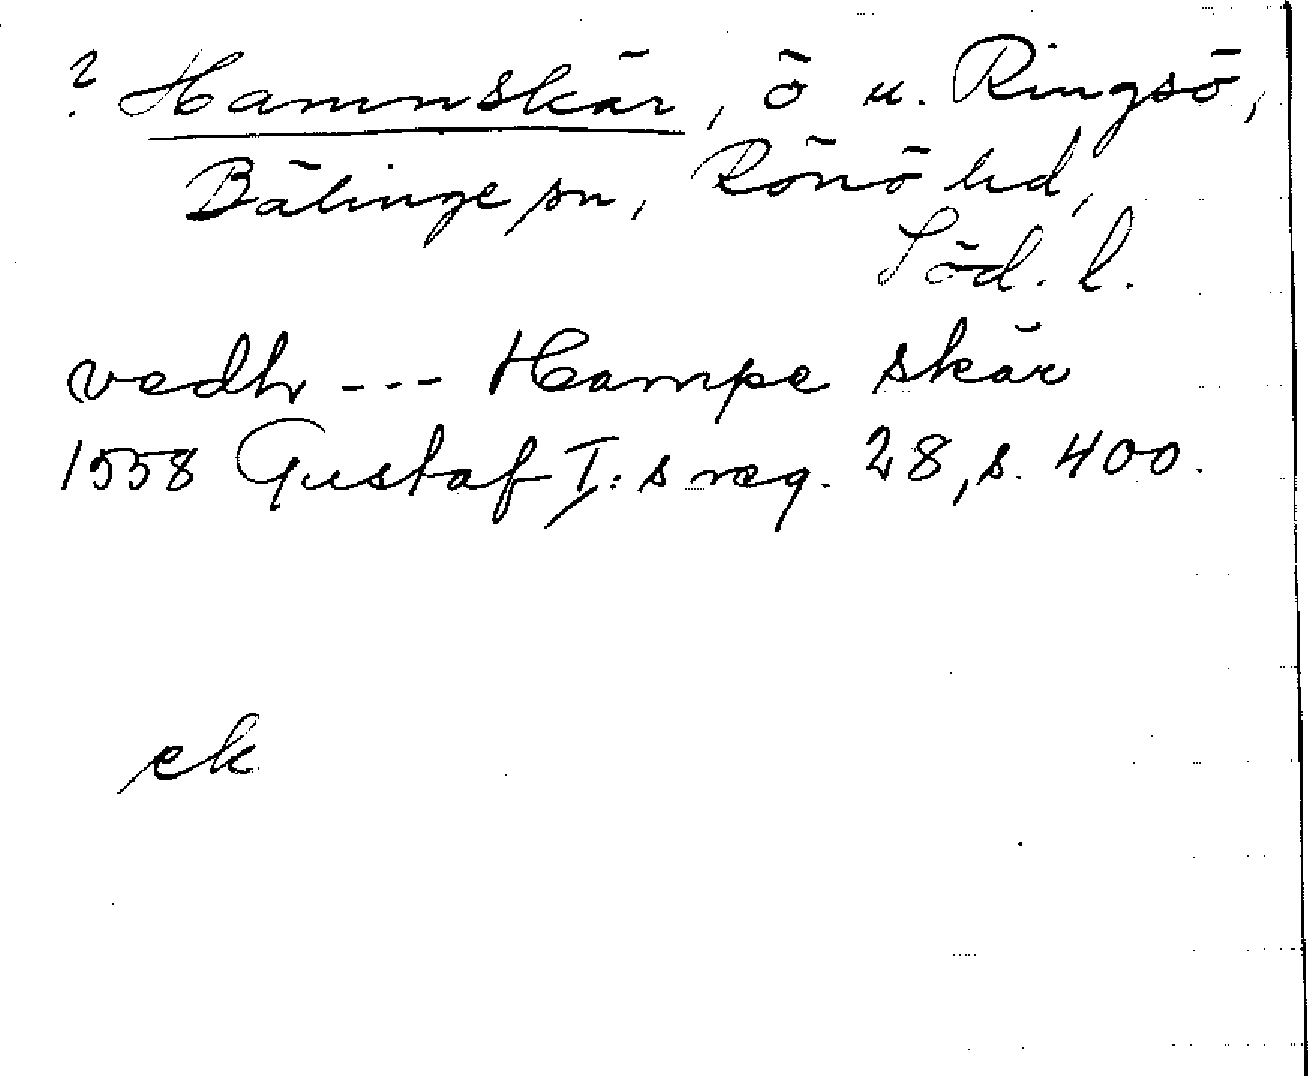 ? Hamnskär, ö u. Ringsö,
Bälinge sn, Rönö hd,
Söd. l.
vedh --- Hampe skär
1558 Gustaf I:s reg. 28, s. 400.
ek